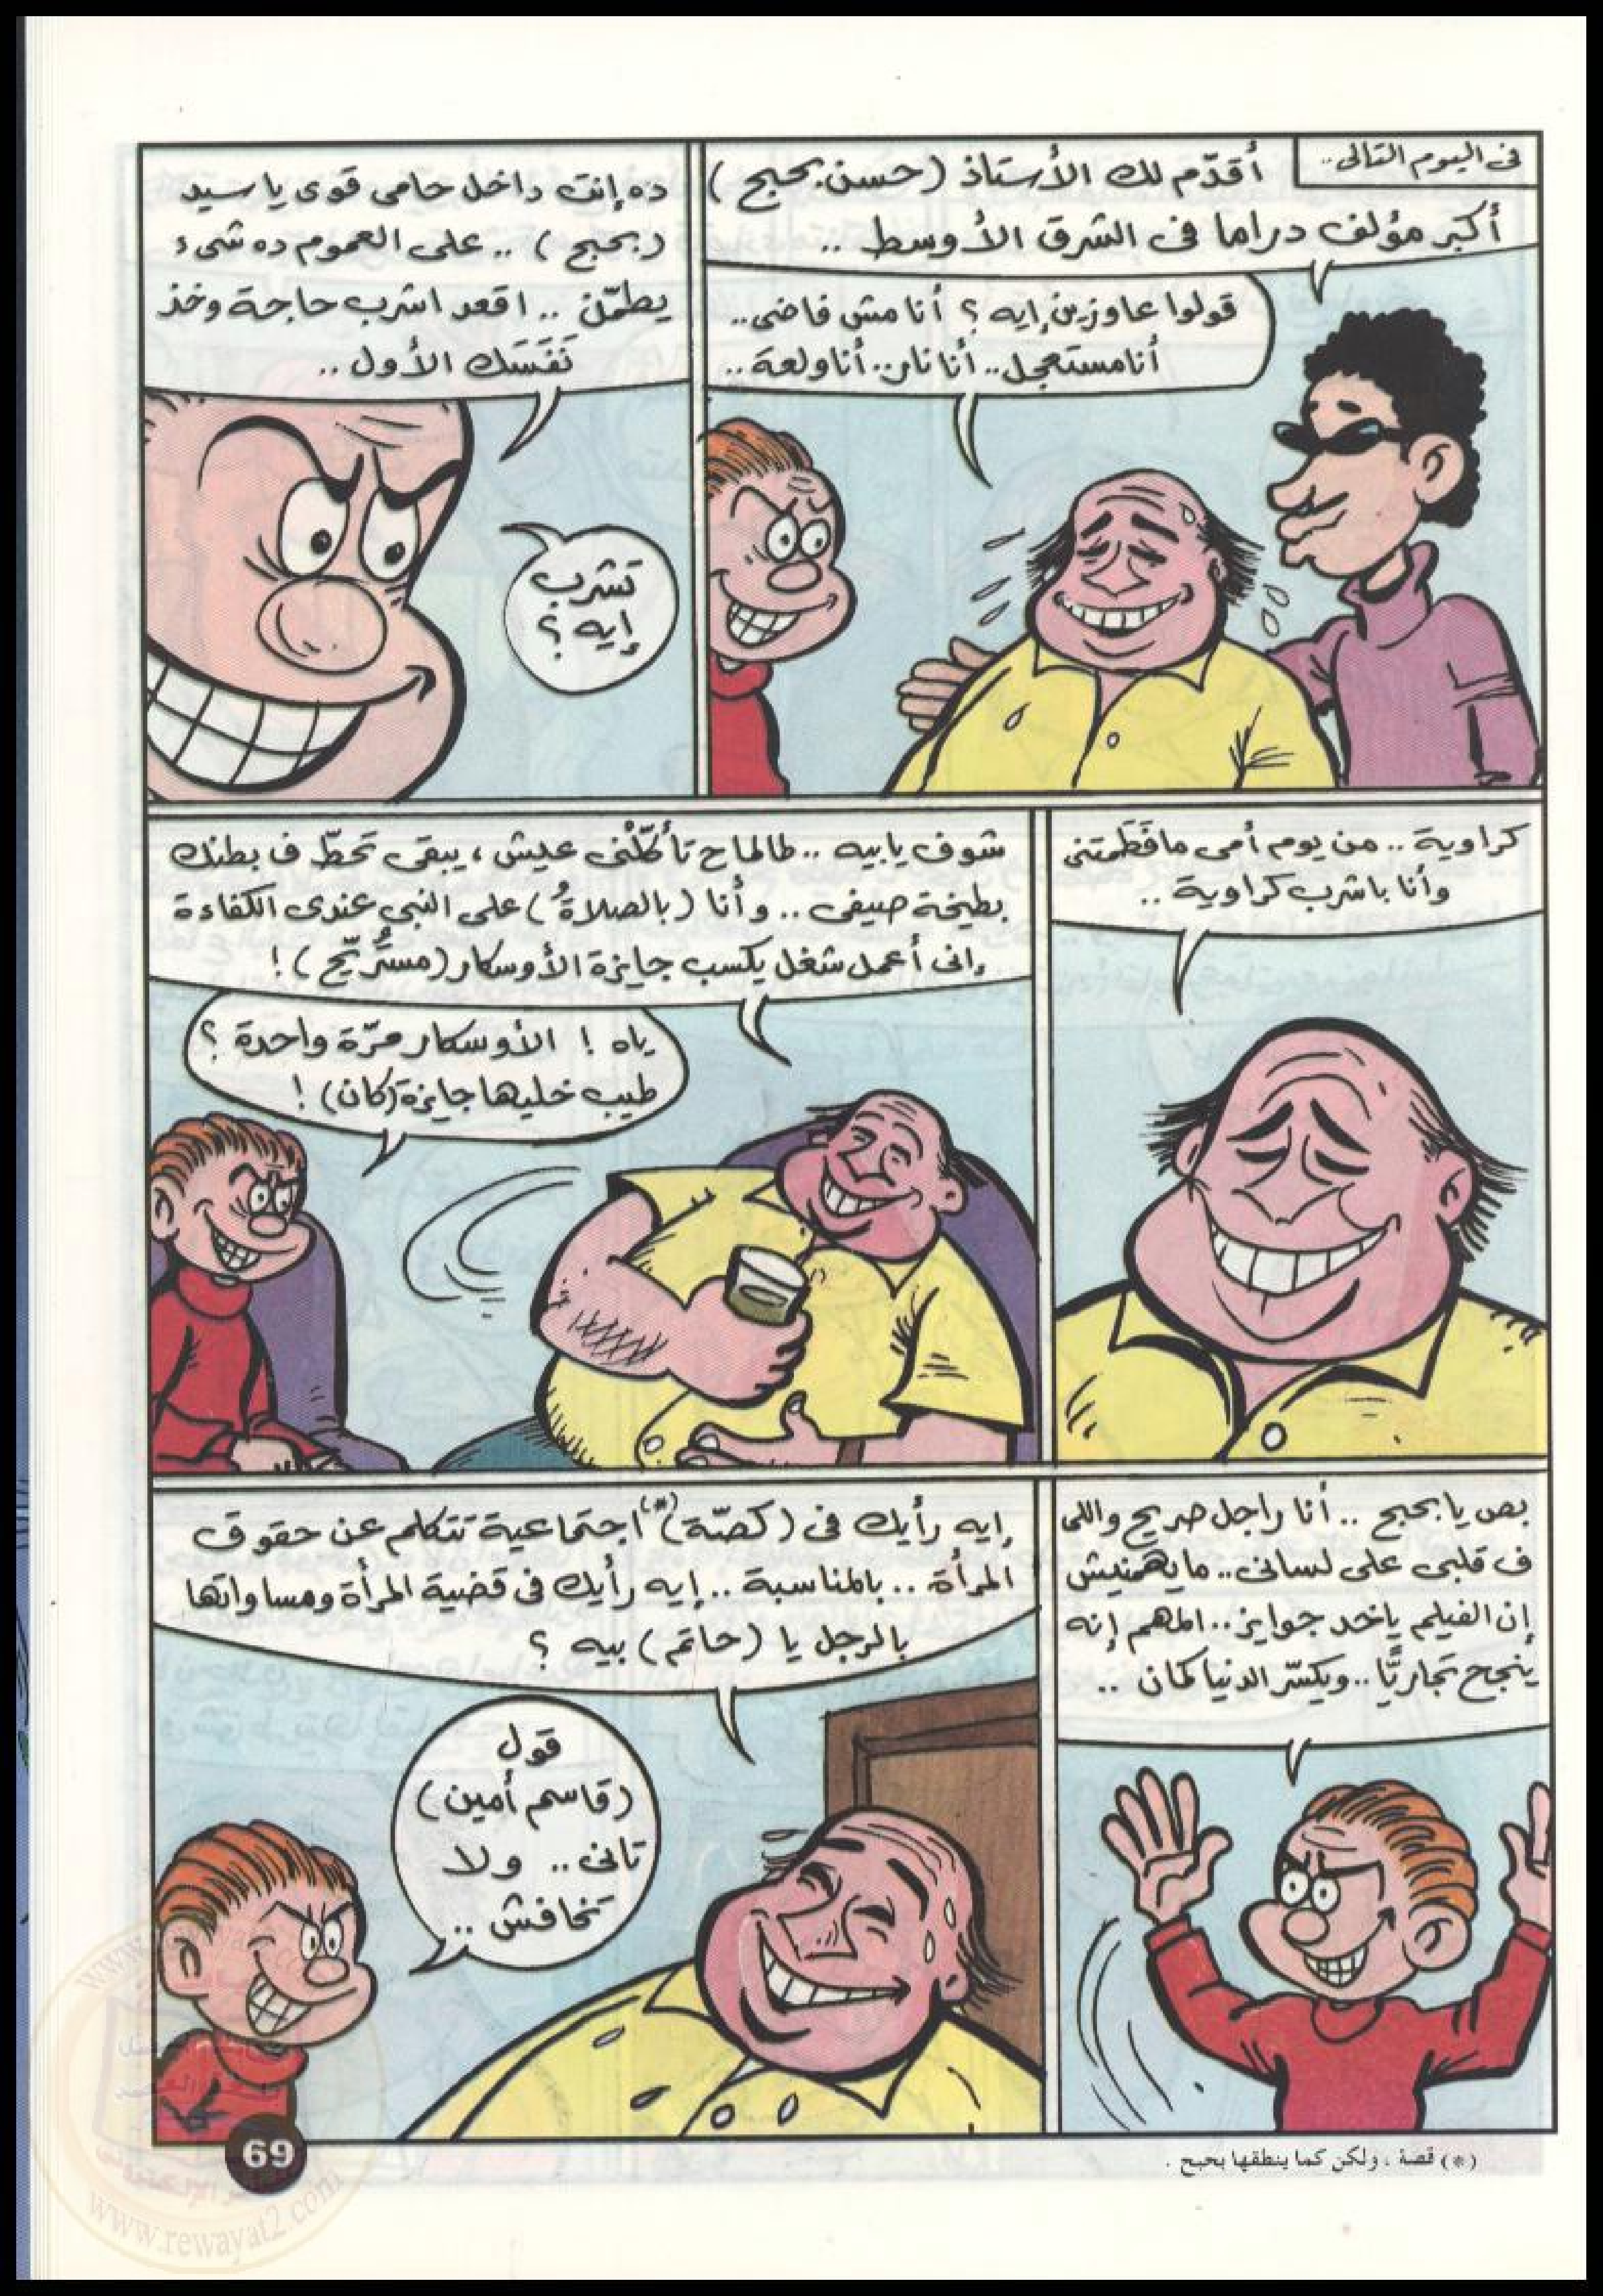 فى اليوم التالى..
أقدّم لك الأستاذ (حسن بحبح)
أكبر مؤلف دراما فى الشرق الأوسط ..
قولوا عاوزين إيه ؟ أنا مش فاضى..
أنا مستعجل.. أنا نار.. أنا ولعة..
ده إنت داخل حامى قوى يا سيد
(بحبح) .. على العموم ده شىء
يطمّن .. اقعد اشرب حاجة وخذ
نَفَسَك الأول ..
تشرب
إيه ؟
كراوية .. من يوم أمى ما فَطَمتنى
وأنا باشرب كراوية ..
شوف يا بيه .. طالما ح تأكّلْنى عيش ، يبقى تحطّ ف بطنك
بطيخة صيفى .. وأنا (بالصلاةُ) على النبى عندى الكفاءة
إنى أعمل شغل يكسب جايزة الأوسكار (مستَّريَّح) !
ياه ! الأوسكار مرّة واحدة ؟
طيب خليها جايزة (كان) !
بص يا بحبح .. أنا راجل صريح واللى
ف قلبى على لسانى.. ما يهمنيش
إن الفيلم ياخد جوايز .. المهم إنه
ينجح تجاريًّا .. ويكسّر الدنيا كمان ..
إيه رأيك فى (كصّة)(*) اجتماعية تتكلم عن حقوق
المرأة .. بالمناسبة .. إيه رأيك فى قضية المرأة ومساواتها
بالرجل يا (حاتم) بيه ؟
قول
(قاسم أمين)
تانى .. ولا
تخافش ..
(*) قصة ، ولكن كما ينطقها بحبح .
69
www.rewayat2.com